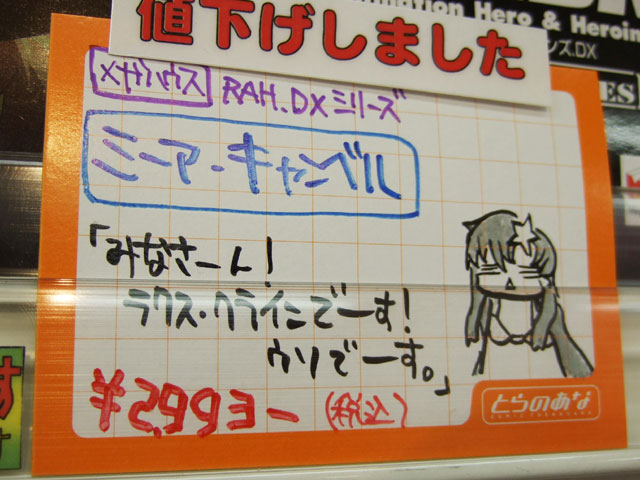 mation Hero & Heroin
ンズ.DX
ES
値下げしました
メガハウス RAH.DXシリーズ
ミーア・キャンベル
「みなさーん!
ラクス・クラインでーす!
ウソでーす。」
¥2,993-(税込)
とらのあな
す